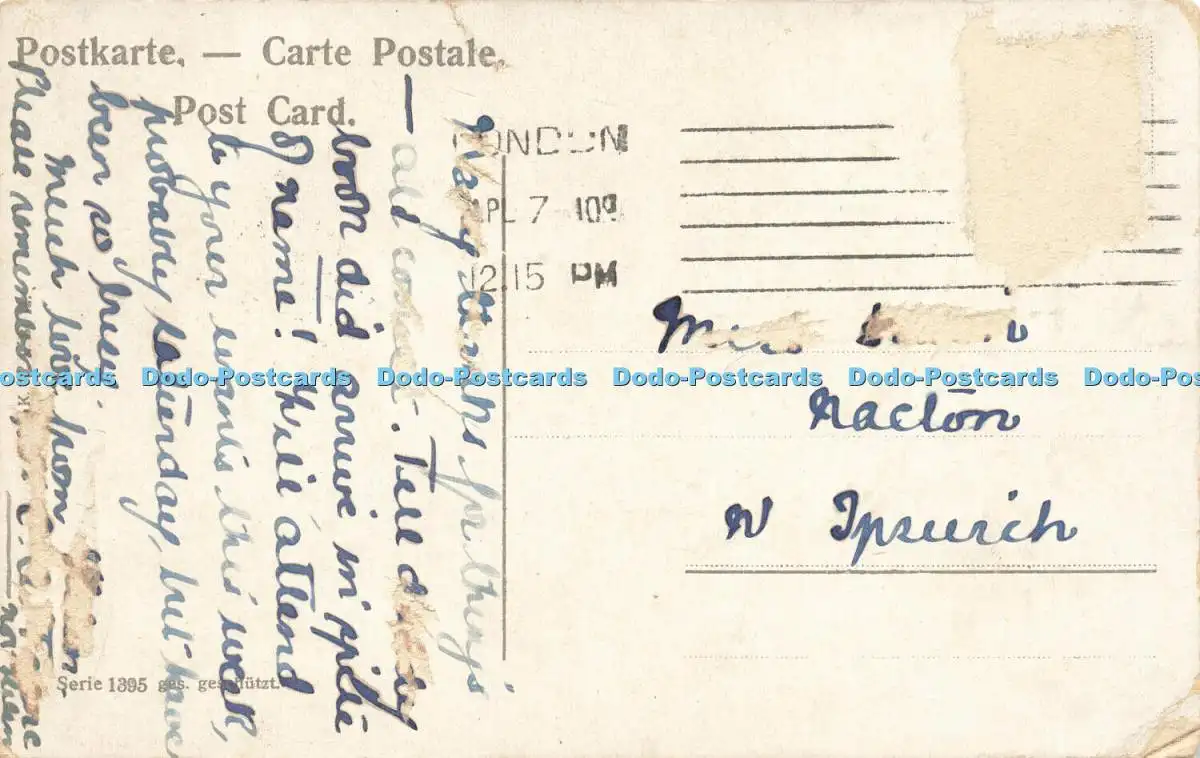 Postkarte. — Carte Postale.
Post Card.
LONDON
APL 7 09
12.15 PM
Miss
Nacton
Nr Ipswich
Many thanks for things
and
Tell
book did arrive in spite
of name! Will attend
to your wants this week,
probably Saturday, but have
been so busy.
Much love from
Please remember
Serie 1395 ges. geschützt.
Dodo-Postcards Dodo-Postcards Dodo-Postcards Dodo-Postcards Dodo-Postcards Dodo-Postcards